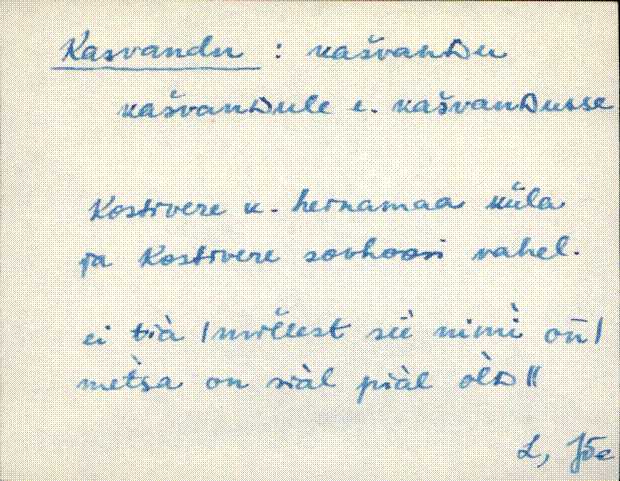 Kasvandu : kašvanDu
kašvanDule e. kašvanDusse
Kostivere k. heinamaa küla
ja Kostivere sovhoosi vahel.
ei tià / millest sìe nimì on̄ /
metsa on siàl piàl òlD //
L, Jõe